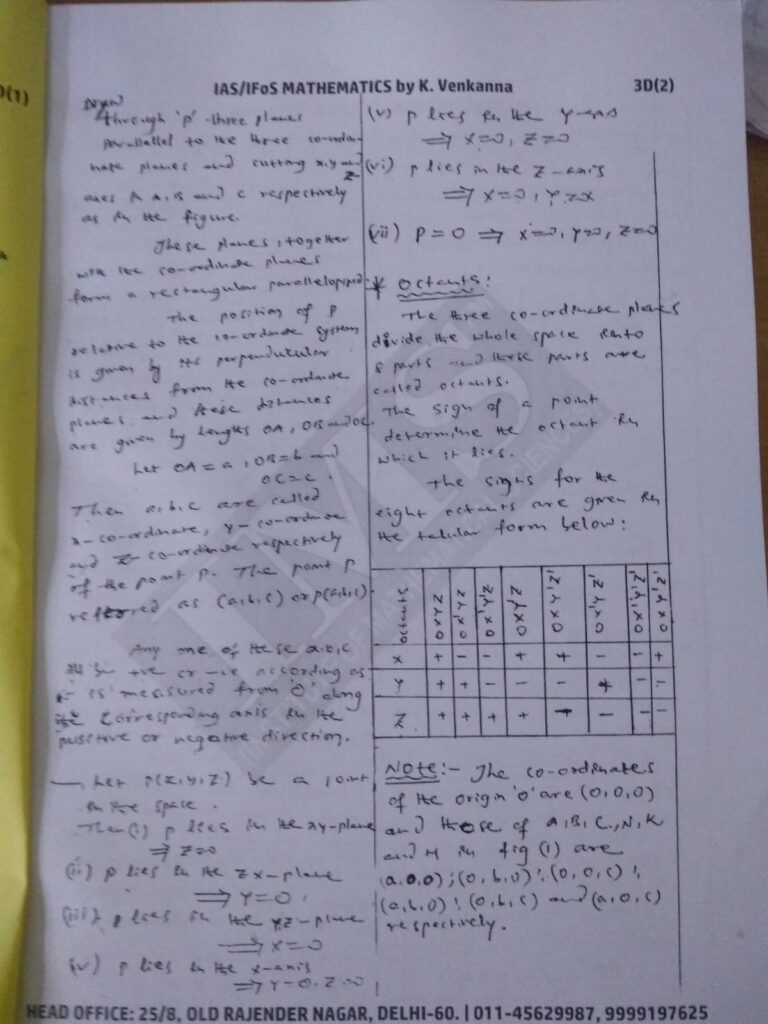 D(1)
IAS/IFoS MATHEMATICS by K. Venkanna
3D(2)
through 'p' three planes
parallel to the three co-ordi-
nate planes and cutting x, y and
z-
axes in A, B and C respectively
as in the figure.
These planes, together
with the co-ordinate planes
form a rectangular parallelopiped.
The position of P
relative to the co-ordinate system
is given by its perpendicular
distances from the co-ordinate
planes and these distances
are given by lengths OA, OB and OC.
Let OA = a, OB = b and
OC = c.
Then a, b, c are called
x-co-ordinate, y-co-ordinate
and z-co-ordinate respectively
of the point P. The point P
referred as (a,b,c) or p(a,b,c)
Any one of these a,b,c
be +ve or -ve according as
is measured from 'O' along
the corresponding axis in the
positive or negative direction.
— Let P(x,y,z) be a point
in the space.
Then (i) p lies in the xy-plane
⇒ z=0
(ii) p lies in the zx-plane
⇒ y=0,
(iii) p lies in the yz-plane
⇒ x=0
(iv) p lies in the x-axis
⇒ y=0, z=0
(v) p lies in the y-axis
⇒ x=0, z=0
(vi) p lies in the z-axis
⇒ x=0,
(vii) P=0 ⇒ x=0, y=0, z=0
* octants:
The three co-ordinate planes
divide the whole space into
8 parts and these parts are
called octants.
The sign of a point
determine the octant in
which it lies.
The signs for the
eight octants are given in
the tabular form below:
octants OXYZ OX'YZ OX'Y'Z OXY'Z OXY'Z' OX'YZ' OX'Y'Z' OXY'Z'
X + - - + + - - +
Y + + - - - + - -
Z + + + + - - - -
Note:- The co-ordinates
of the origin 'o' are (0,0,0)
and those of A, B, C, N, K
and M in fig (1) are
(a,0,0); (0,b,0); (0,0,c);
(a,b,0); (0,b,c) and (a,0,c)
respectively.
HEAD OFFICE: 25/8, OLD RAJENDER NAGAR, DELHI-60. | 011-45629987, 9999197625